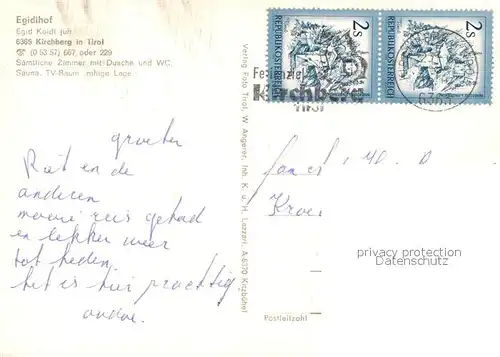 Egidihof
Egid Koidl jun.
6365 Kirchberg in Tirol
☎ (0 53 57) 667 oder 229
Sämtliche Zimmer mit Dusche und WC,
Sauna, TV-Raum, ruhige Lage
2s
REPUBLIK ÖSTERREICH
2s
REPUBLIK ÖSTERREICH
Ferienziel
Kirchberg
TIROL
6365
Verlag Foto Tirol, W. Angerer, Inh. K. u. H. Lazzari, A-6370 Kitzbühel
groeten
Riet en de
anderen
mooie reis gehad
en lekker weer
tot heden.
het is hier prachtig
privacy protection
Datenschutz
Postleitzahl